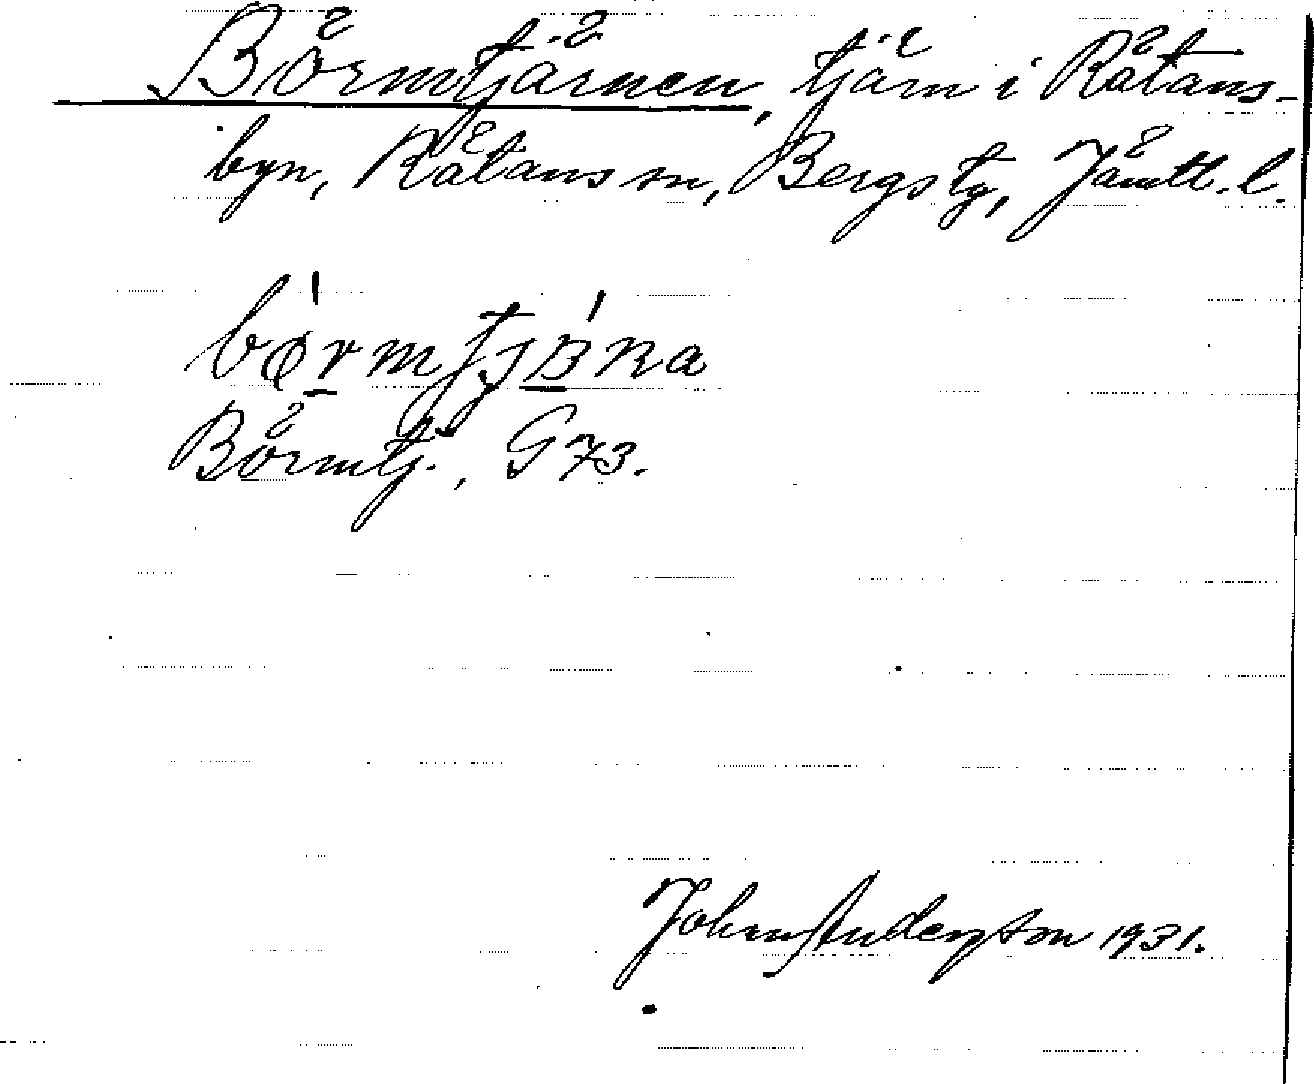 Börmtjärnen, tjärn i Rätans-
byn, Rätans sn, Bergs tg, Jämtl. l.
Börmtj., G 73.
Johan Anderson 1931.